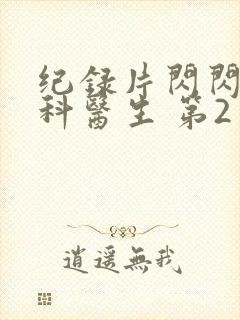 纪録片閃閃
科醫生 第2
逍遥無我